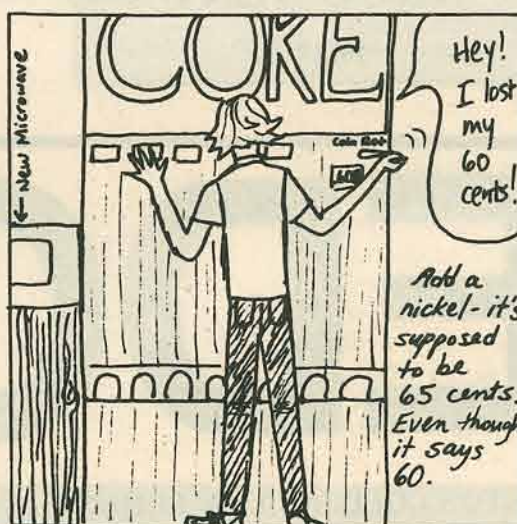 COKE
← New Microwave
Coin Slot
60¢
Hey!
I lost
my
60
cents!
Add a
nickel - it's
supposed
to be
65 cents.
Even though
it says
60.